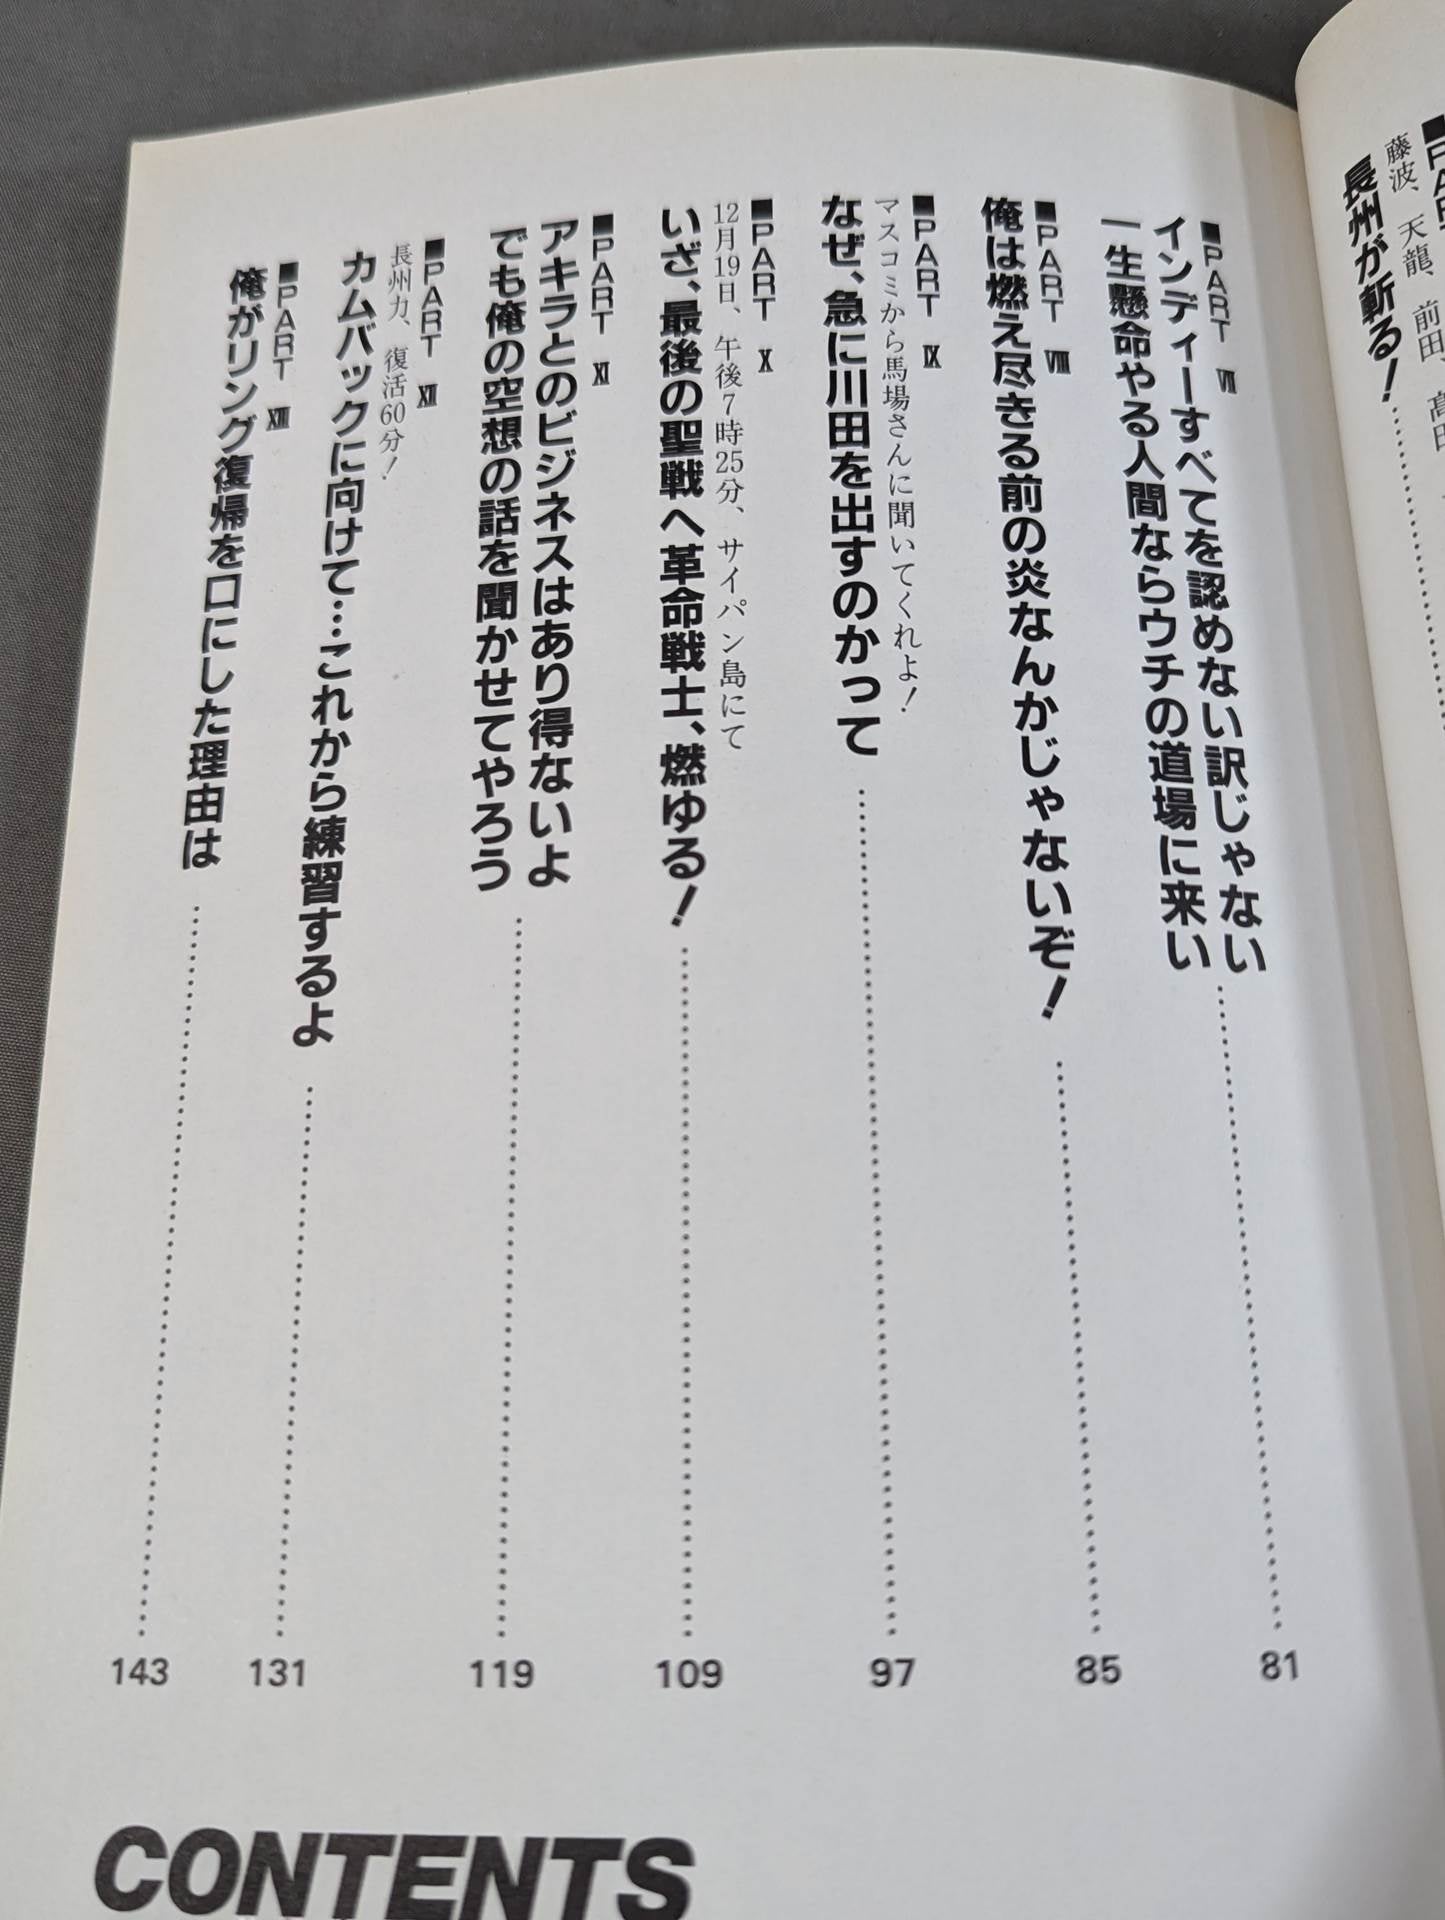 藤波、天龍、前田、高田
長州が斬る！
■PART Ⅶ
インディーすべてを認めない訳じゃない
一生懸命やる人間ならウチの道場に来い
81
■PART Ⅷ
俺は燃え尽きる前の炎なんかじゃないぞ！
85
■PART Ⅸ
マスコミから馬場さんに聞いてくれよ！
なぜ、急に川田を出すのかって
97
■PART Ⅹ
12月19日、午後7時25分、サイパン島にて
いざ、最後の聖戦へ革命戦士、燃ゆる！
109
■PART Ⅺ
アキラとのビジネスはあり得ないよ
でも俺の空想の話を聞かせてやろう
119
■PART Ⅻ
長州力、復活60分！
カムバックに向けて…これから練習するよ
131
■PART XIII
俺がリング復帰を口にした理由は
143
CONTENTS